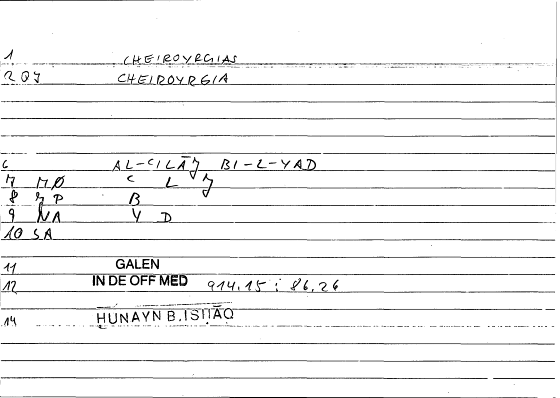 1 CHEIROYRGIAS
2 QJ CHEIROYRGIA
6 AL-CILĀJ BI-L-YAD
7 MØ C L J
8 JP B
9 NA Y D
10 SA
11 GALEN
12 IN DE OFF MED 914.15 ; 86.26
14 HUNAYN B. ISḤĀQ